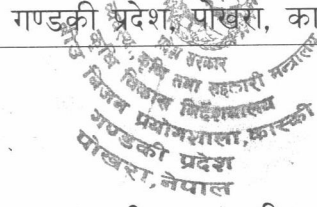 गण्डकी प्रदेश, पोखरा, का
प्रदेश सरकार
कृषि तथा सहकारी मन्त्रालय
कृषि विकास निर्देशनालय
बीउ विजन प्रयोगशाला, कास्की
गण्डकी प्रदेश
पोखरा, नेपाल